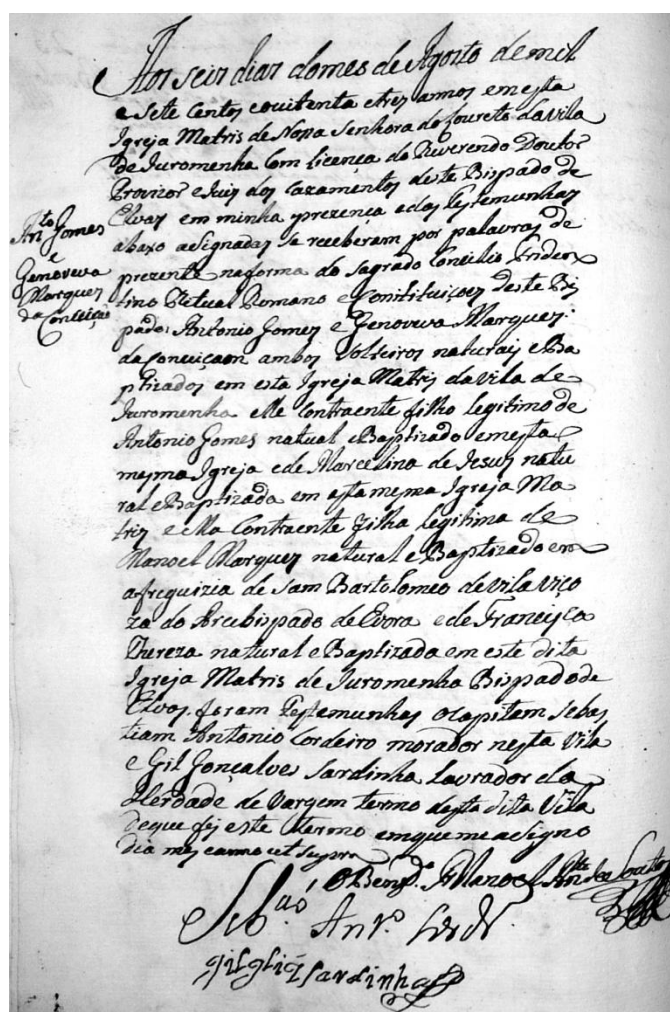 Aos seis dias do mes de Agosto de mil
e sete centos e oitenta e tres annos em esta
Igreja Matris de Nossa Senhora do Loureto da Vila
de Iuromenha Com licença do Reverendo Doutor
Provizor e Juis dos Cazamentos deste Bispado de
Elvas em minha prezença e das testemunhas
abaxo asignadas se receberam por palavras de
prezente na forma do Sagrado Concilio Triden
tino Ritual Romano e Constituiçoes deste Bis
pado: Antonio Gomes e Genoveva Marques
da Conceiçaon ambos Solteiros naturais e Ba
ptizados em esta Igreja Matris da Vila de
Iuromenha elle Contraente filho legitimo de
Antonio Gomes natural e Baptizado em esta
mesma Igreja e de Marcelina de Iesus natu
ral e Baptizada em esta mesma Igreja Ma
tris e ella Contraente filha legitima de
Manoel Marques natural e Baptizado em
a freguizia de Sam Bartolomeo de Vila Viço
za do Arcebispado de Evora e de Francisca
Thereza natural e Baptizada em este dita
Igreja Matris de Iuromenha Bispado de
Elvas. foram testemunhas o Capitam Sebas
tiam Antonio Cordeiro morador nesta Vila
e Gil Gonçalves Sardinha Lavrador da
Herdade de Vargem termo desta dita Vila
de que fis este termo em que me asigno
dia mes e anno ut supra
O Benefdo. Manoel
Sebam. Anto. Cordro.
gil glz Sardinha
Anto. Gomes
e
Genoveva
Marques
da Conceiçao